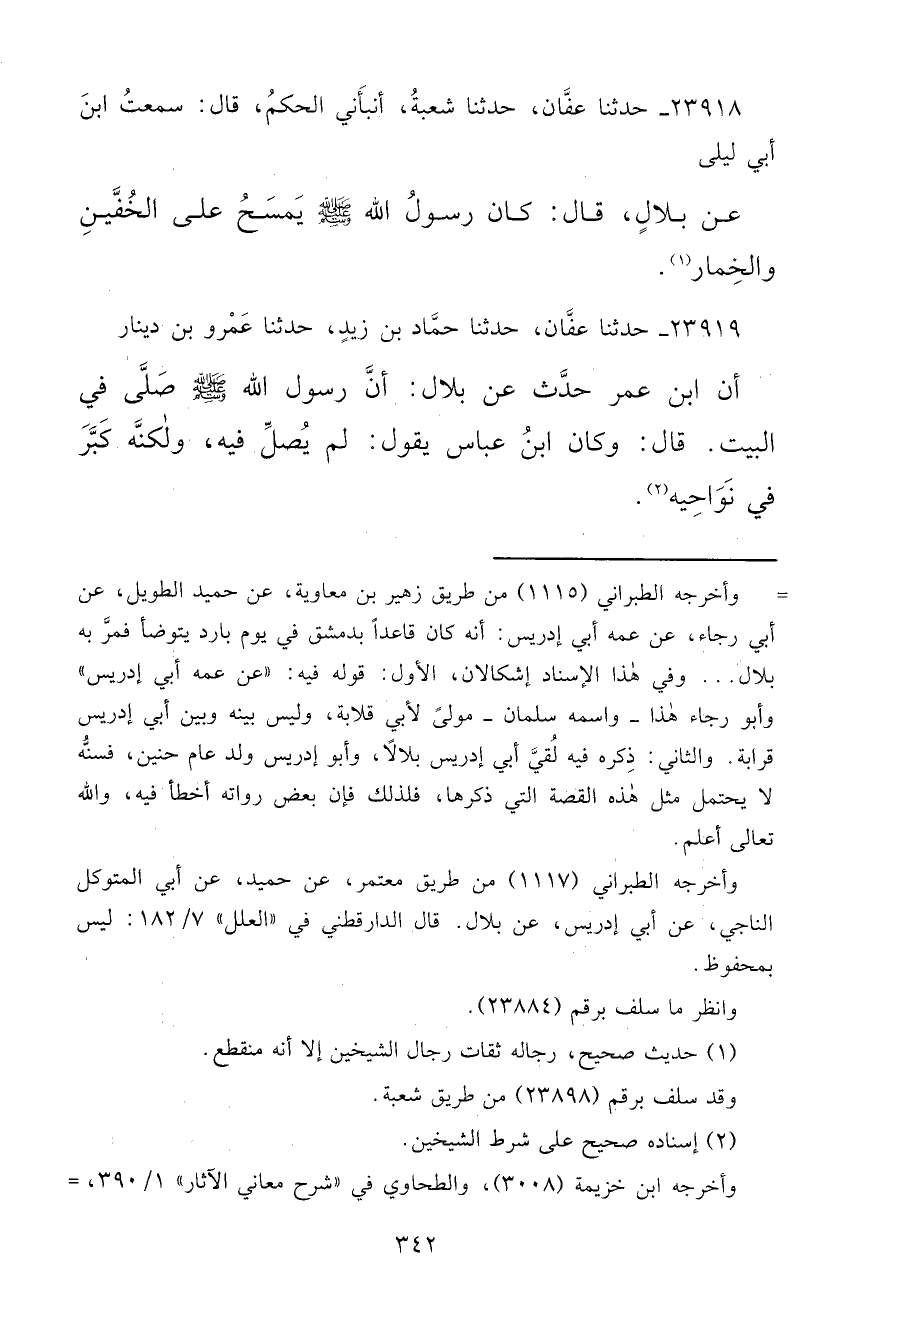 ٢٣٩١٨ـ حدثنا عفَّان، حدثنا شعبةُ، أنبأَني الحكمُ، قال: سمعتُ ابنَ
أبي ليلى
عـن بـلالٍ، قـال: كـان رسـولُ الله ﷺ يَمسَـحُ علـى الخُفَّيـنِ
والخِمار(١).
٢٣٩١٩ـ حدثنا عفَّان، حدثنا حمَّاد بن زيدٍ، حدثنا عَمْرو بن دينار
أن ابن عمر حدَّث عن بلال: أنَّ رسول الله ﷺ صَلَّى في
البيت. قال: وكان ابنُ عباس يقول: لم يُصلِّ فيه، ولٰكنَّه كَبَّرَ
في نَوَاحِيه(٢).
= وأخرجه الطبراني (١١١٥) من طريق زهير بن معاوية، عن حميد الطويل، عن
أبي رجاء، عن عمه أبي إدريس: أنه كان قاعداً بدمشق في يوم بارد يتوضأ فمرَّ به
بلال... وفي هٰذا الإسناد إشكالان، الأول: قوله فيه: «عن عمه أبي إدريس»
وأبو رجاء هٰذا ـ واسمه سلمان ـ مولىً لأبي قلابة، وليس بينه وبين أبي إدريس
قرابة. والثاني: ذِكره فيه لُقيَّ أبي إدريس بلالًا، وأبو إدريس ولد عام حنين، فسنُّه
لا يحتمل مثل هٰذه القصة التي ذكرها، فلذلك فإن بعض رواته أخطأ فيه، والله
تعالى أعلم.
وأخرجه الطبراني (١١١٧) من طريق معتمر، عن حميد، عن أبي المتوكل
الناجي، عن أبي إدريس، عن بلال. قال الدارقطني في «العلل» ١٨٢/٧: ليس
بمحفوظ.
وانظر ما سلف برقم (٢٣٨٨٤).
(١) حديث صحيح، رجاله ثقات رجال الشيخين إلا أنه منقطع.
وقد سلف برقم (٢٣٨٩٨) من طريق شعبة.
(٢) إسناده صحيح على شرط الشيخين.
وأخرجه ابن خزيمة (٣٠٠٨)، والطحاوي في «شرح معاني الآثار» ٣٩٠/١، =
٣٤٢